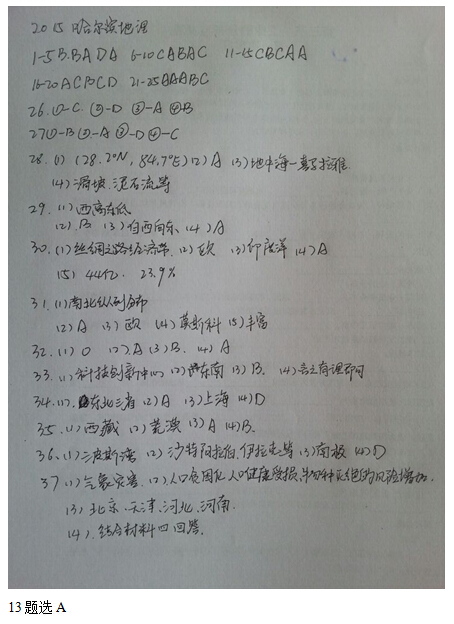 2015哈尔滨地理
1-5 B.BADA 6-10CABAC 11-15CBCAA
16-20ACBCD 21-25AAABC
26.①-C ②-D ③-A ④-B
27①-B②-A③-D④-C
28.(1)(28.2°N,84.7°E)(2)A (3)地中海—喜马拉雅
(4)滑坡、泥石流等
29.(1)西高东低
(2)B (3)自西向东 (4)A
30.(1)丝绸之路经济带 (2)欧 (3)印度洋 (4)A
(5)44亿、23.9%
31.(1)南北纵列分布
(2)A (3)欧 (4)莫斯科 (5)丰富
32.(1)0 (2)A (3)B. (4)A
33.(1)科技创新中心 (2)东南 (3)B. (4)言之有理即可
34.(1)东北三省 (2)A (3)上海 (4)D
35.(1)西藏 (2)荒漠 (3)A (4)B.
36.(1)波斯湾 (2)沙特阿拉伯、伊拉克等 (3)南极 (4)D
37(1)气象灾害 (2)人口贫困化,人口健康受损,物种灭绝的风险增加.
(3)北京、天津、河北、河南.
(4).结合材料四回答.
13题选A